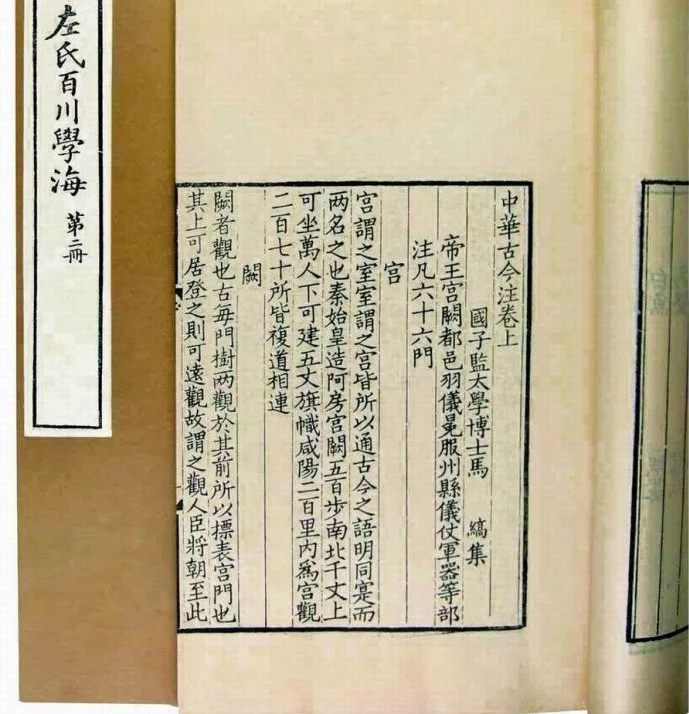 左氏百川學海 第二冊
中華古今注卷上
國子監太學博士馬 縞集
帝王宫闕都邑羽儀冕服州縣儀仗軍器等部
注凡六十六門
宫
宫謂之室室謂之宫皆所以通古今之語明同寔而
两名之也秦始皇造阿房宫闕五百步南北千丈上
可坐萬人下可建五丈旗幟咸陽二百里内爲宫觀
二百七十所皆複道相連
闕
闕者觀也古每門樹两觀於其前所以摽表宫門也
其上可居登之則可遠觀故謂之觀人臣將朝至此